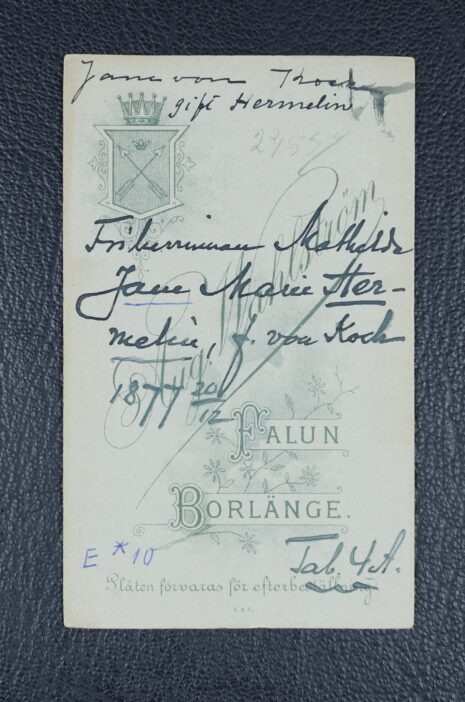 Jane von Koch
gift Hermelin
Aug. Wahlström
Friherrinnan Mathilda
Jane Marie Her-
melin, f. von Koch
1877 20/12
FALUN
BORLÄNGE.
E * 10
Tab. 4 A.
Plåten förvaras för efterbeställning